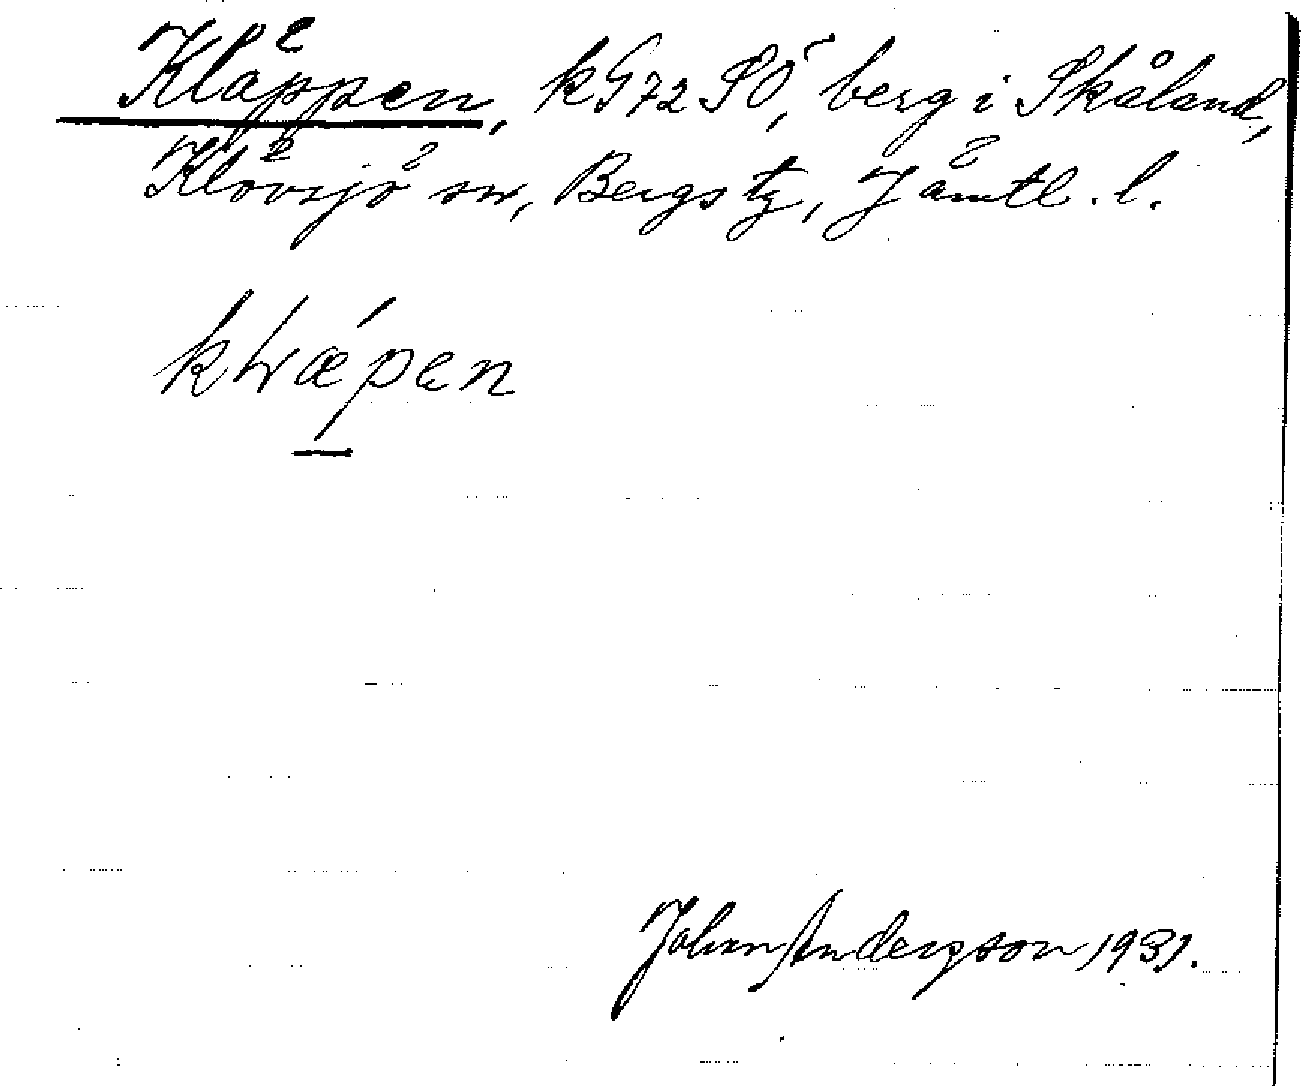 Kläppen, kG72SÖ, berg i Skåland,
Klövsjö sn, Bergs tg, Jämtl. l.
kLæ´pen
Johan Anderzson 1931.